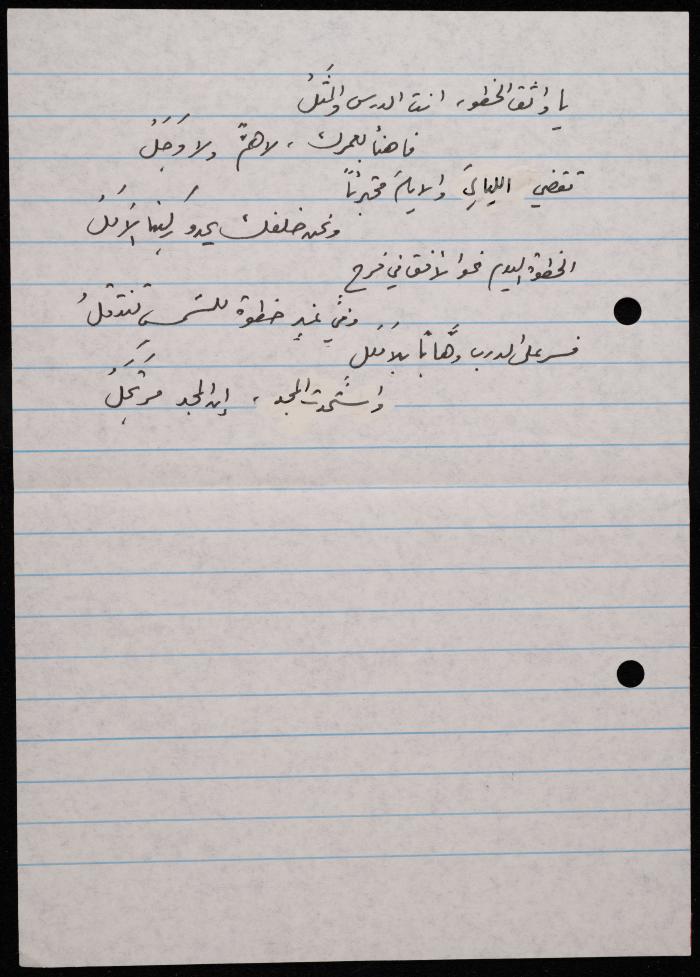 يا واثق الخطو، انت الدرس والمَثَلُ
فاهنأ بعمرك، لا همٌّ ولا وَجَلُ
تقضي الليالِيَ والايامَ مجتريئاً
ونحن خلفك يحدو ركبَنا الأَملُ
الخطوة اليوم نحو الأفق في فرح
وفي غدٍ خطوة للشمس تنتقلُ
فسر على الدرب وهَّاباً بلا مَلَل
المجد، إن المجد مرتَجَلُ